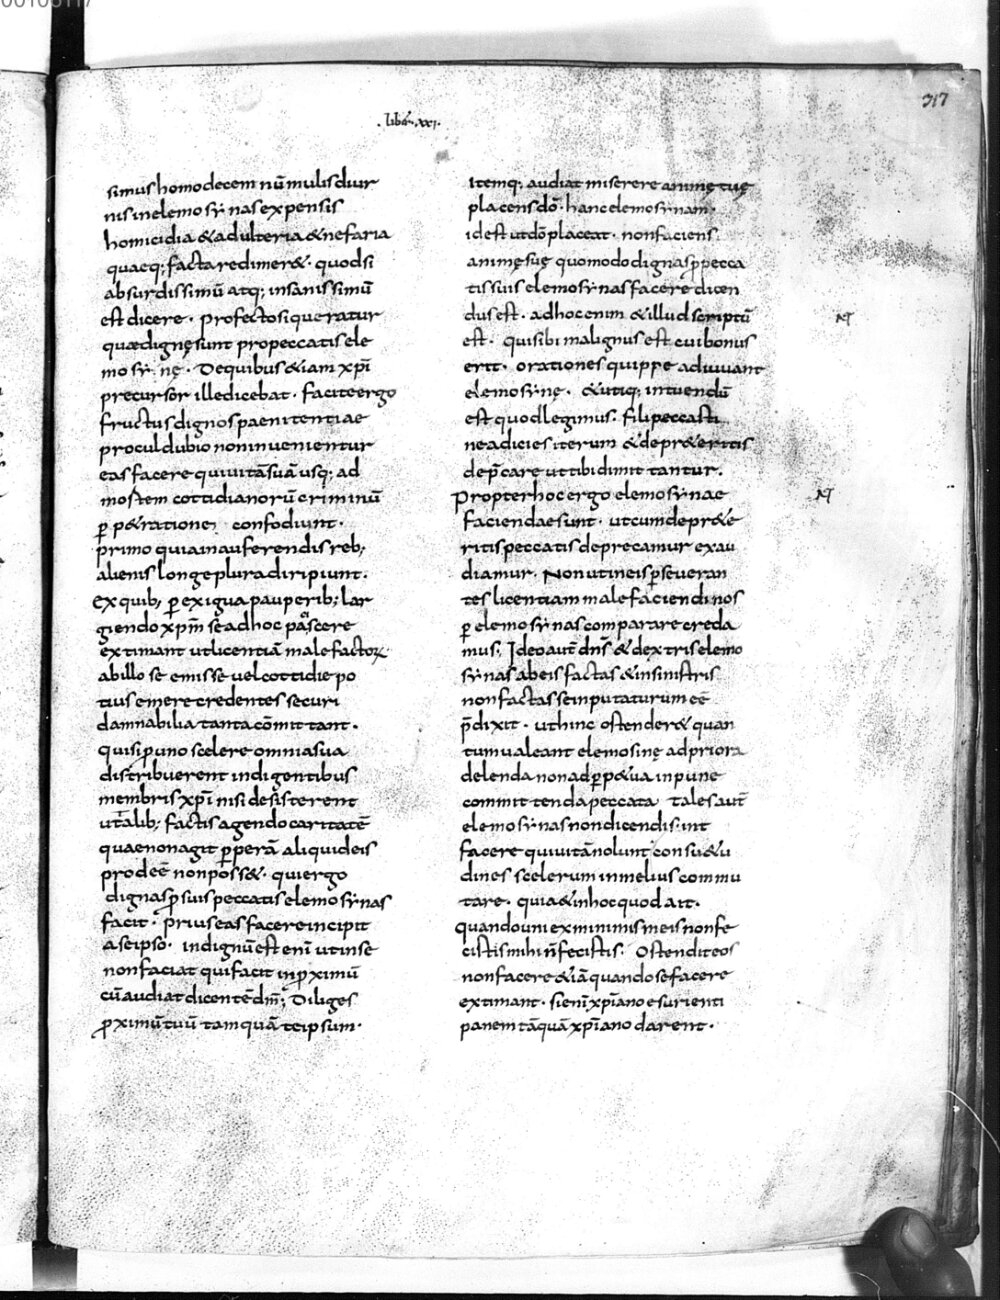 317
·lib̄· xxi·
simus homo decem nūmulis diur
nis in elemosynas expensis
homicidia & adulteria & nefaria
quaeq; facta redimer&· quod si
absurdissimū atq; insanissimū
est dicere· profecto si queratur
quae dignę sunt pro peccatis ele
mosynę· De quibus & iam xp̄i
precursor ille dicebat· facite ergo
fructus dignos paenitentiae
procul dubio non invenientur
eas facere qui vitā suā usq; ad
mortem cottidianorū criminū
ꝑp&ratione confodiunt·
primo quia in auferendis reb;
alienis longe plura diripiunt·
ex quib; ꝑexigua pauperib; lar
giendo xp̄m se ad hoc pascere
extimant ut licentiā malefactoꝝ
ab illo se emisse vel cottidie po
tius emere credentes securi
damnabilia tanta cōmittant·
qui si ꝓ uno scelere omnia sua
distribuerent indigentibus
membris xp̄i nisi desisterent
a talib; factis agendo caritatē
quae non agit ꝑperā aliquid eis
prodeē non poss&· qui ergo
dignas ꝓ suis peccatis elemosynas
facit· prius eas facere incipit
a se ipso· indignū est eni ut in se
non faciat qui facit in ꝓximū
cū audiat dicentē dm̄; Diliges
ꝓximū tuū tamquā te ipsum·
itemq; audiat miserere animę tuę
placens dō· hanc elemosynam·
id est ut dō placeat· non faciens
animę suę quomodo dignas ꝓ pecca
tis suis elemosynas facere dicen
dus est· ad hoc enim & illud scriptū
est· qui sibi malignus est cui bonus
erit· orationes quippe adiuvant
elemosynę· & utiq; intuendū
est quod legimus· fili peccasti
ne adicies iterum & de pr&eritis
dep̄care ut tibi dimittantur·
Propter hoc ergo elemosynae
faciendae sunt· ut cum de pr&e
ritis peccatis deprecamur exau
diamur· Non ut in eis ꝑseveran
tes licentiam male faciendi nos
ꝑ elemosynas comparare creda
mus· Ideo aut̄ dn̄s & dextris elemo
synas ab eis factas & in sinistris
non factas se inputaturum eē
p̄dixit· ut hinc ostender& quan
tum valeant elemosinę ad priora
delenda non ad ꝑp&ua inpune
committenda peccata tales aut̄
elemosynas non dicendi sint
facere qui vitā nolunt consu&u
dines scelerum in melius commu
tare· quia & in hoc quod ait·
quando uni ex minimis meis non fe
cistis mihi n̄ fecistis· Ostendit eos
non facere & iā quando se facere
extimant· si eni xp̄iano esurienti
panem tāquā xp̄iano darent·